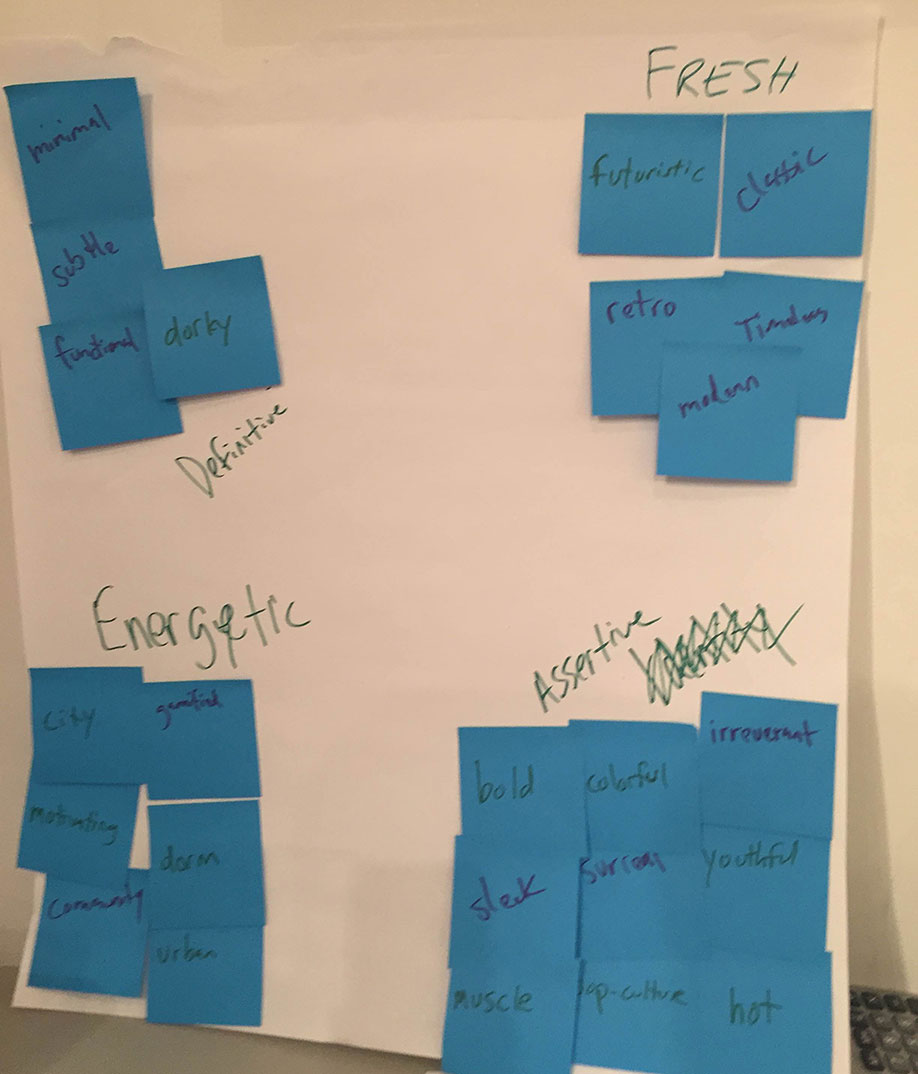 minimal
subtle
functional
dorky
Definitive
FRESH
futuristic
classic
retro
Timeless
modern
Energetic
city
gamified
motivating
dorm
community
urban
Assertive
bold
colorful
irreverant
sleek
surreal
youthful
muscle
pop-culture
hot